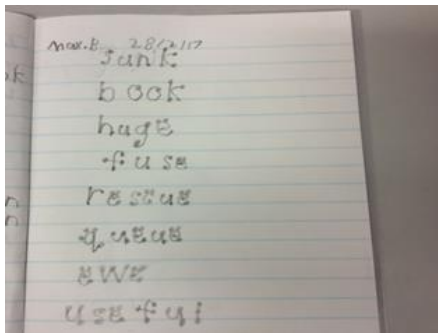 Max.B 28/2/17
junk
book
huge
fuse
rescue
queue
ewe
useful